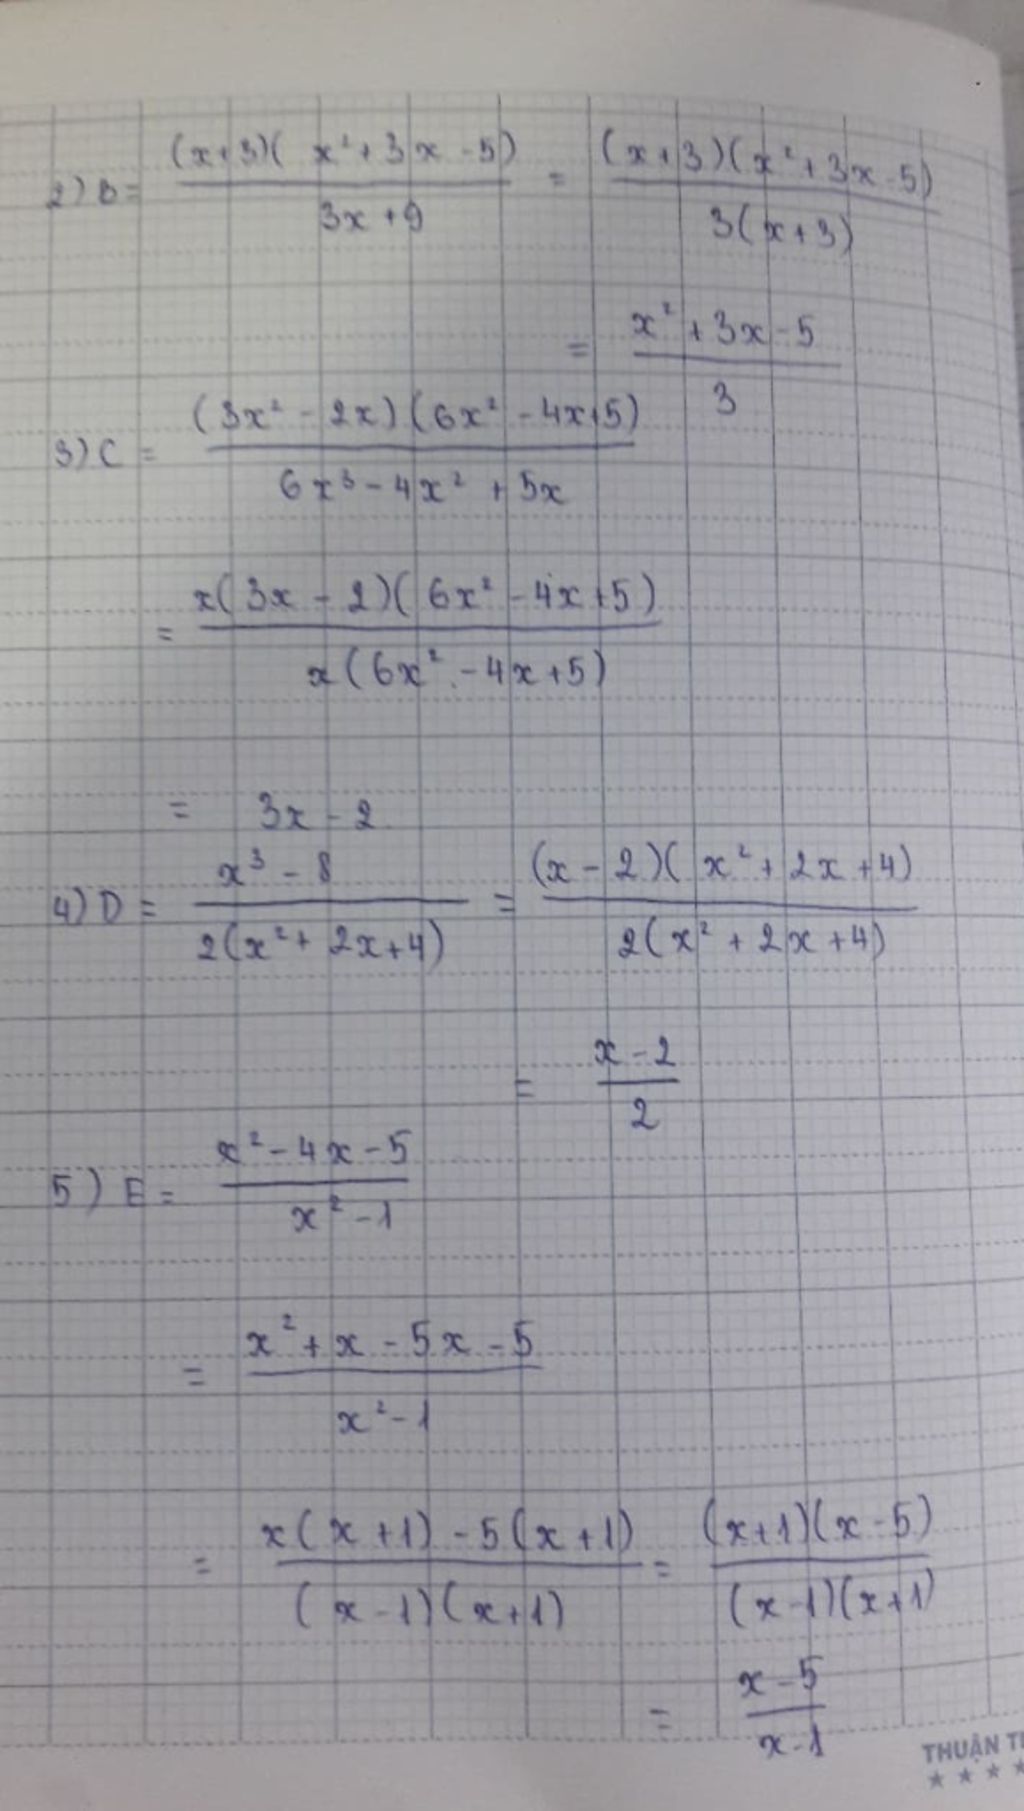 2) B = \frac{(x+3)(x²+3x-5)}{3x+9} = \frac{(x+3)(x²+3x-5)}{3(x+3)}
= \frac{x²+3x-5}{3}
3) C = \frac{(3x²-2x)(6x²-4x+5)}{6x³-4x²+5x}
= \frac{x(3x-2)(6x²-4x+5)}{x(6x²-4x+5)}
= 3x-2
4) D = \frac{x³-8}{2(x²+2x+4)} = \frac{(x-2)(x²+2x+4)}{2(x²+2x+4)}
= \frac{x-2}{2}
5) E = \frac{x²-4x-5}{x²-1}
= \frac{x²+x-5x-5}{x²-1}
= \frac{x(x+1)-5(x+1)}{(x-1)(x+1)} = \frac{(x+1)(x-5)}{(x-1)(x+1)}
= \frac{x-5}{x-1}
THUẬN